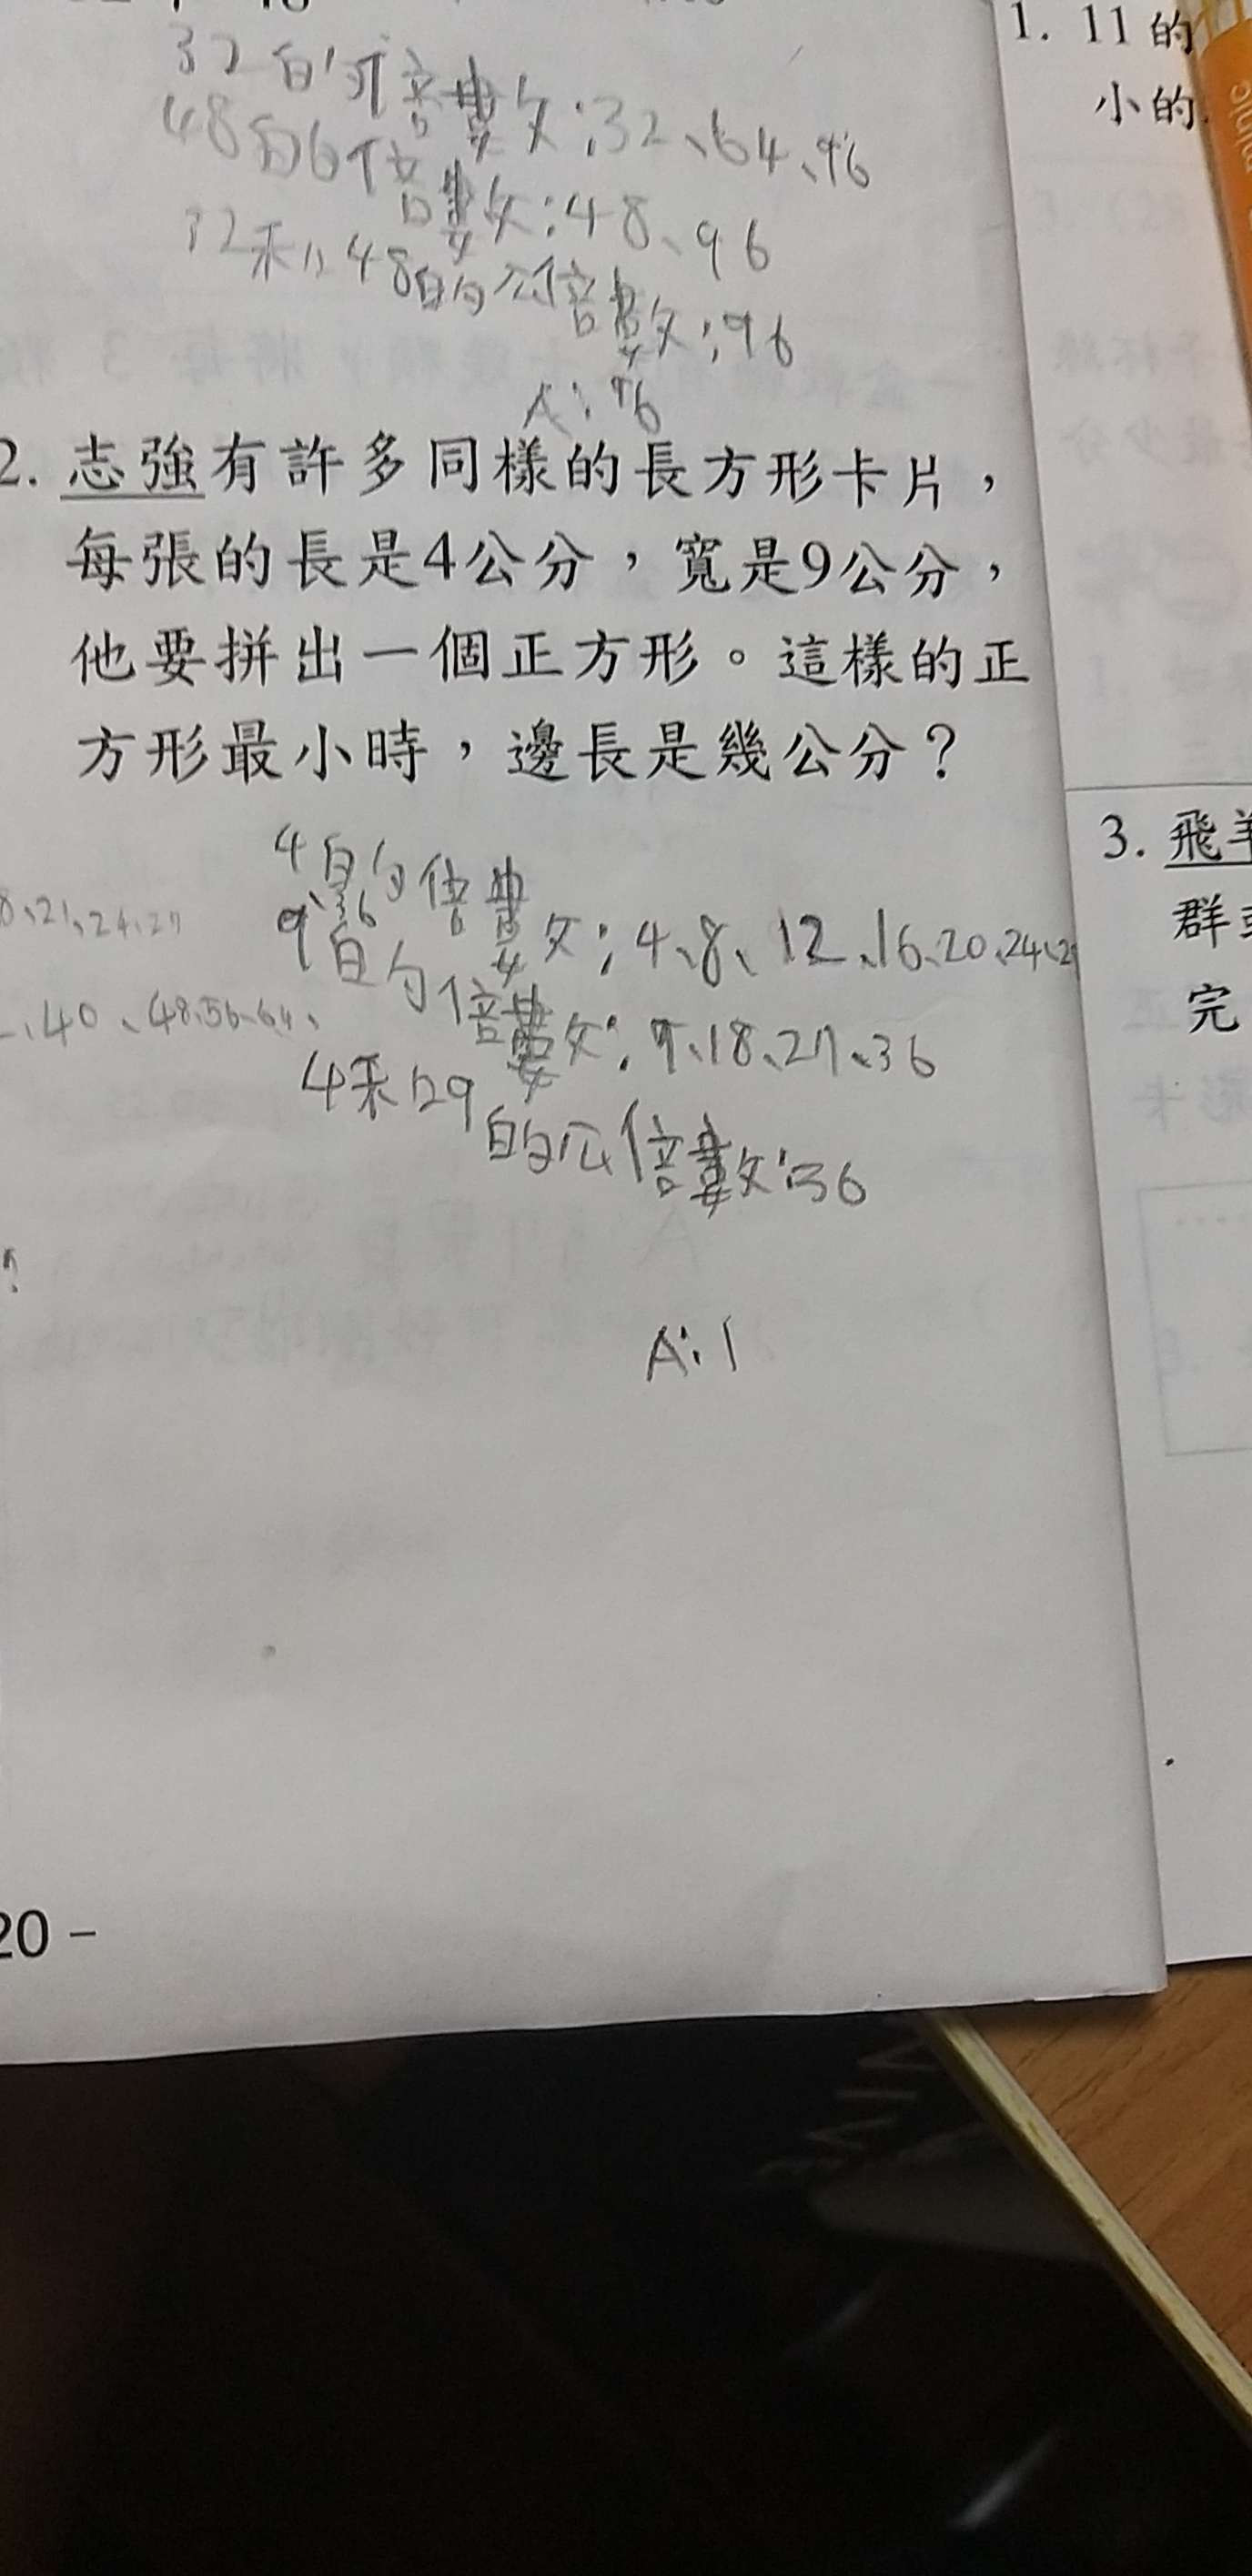 32的倍數:32、64、96
48的倍數:48、96
32和48的公倍數:96
A:96
2. 志強有許多同樣的長方形卡片，
每張的長是4公分，寬是9公分，
他要拼出一個正方形。這樣的正
方形最小時，邊長是幾公分？
4的倍數:4、8、12、16、20、24、2
36
9的倍數:9、18、27、36
4和9的公倍數:36
A:1
、21、24、27
、40、48、56、64、
20 –
1. 11的
小的
3. 飛羊
群
完